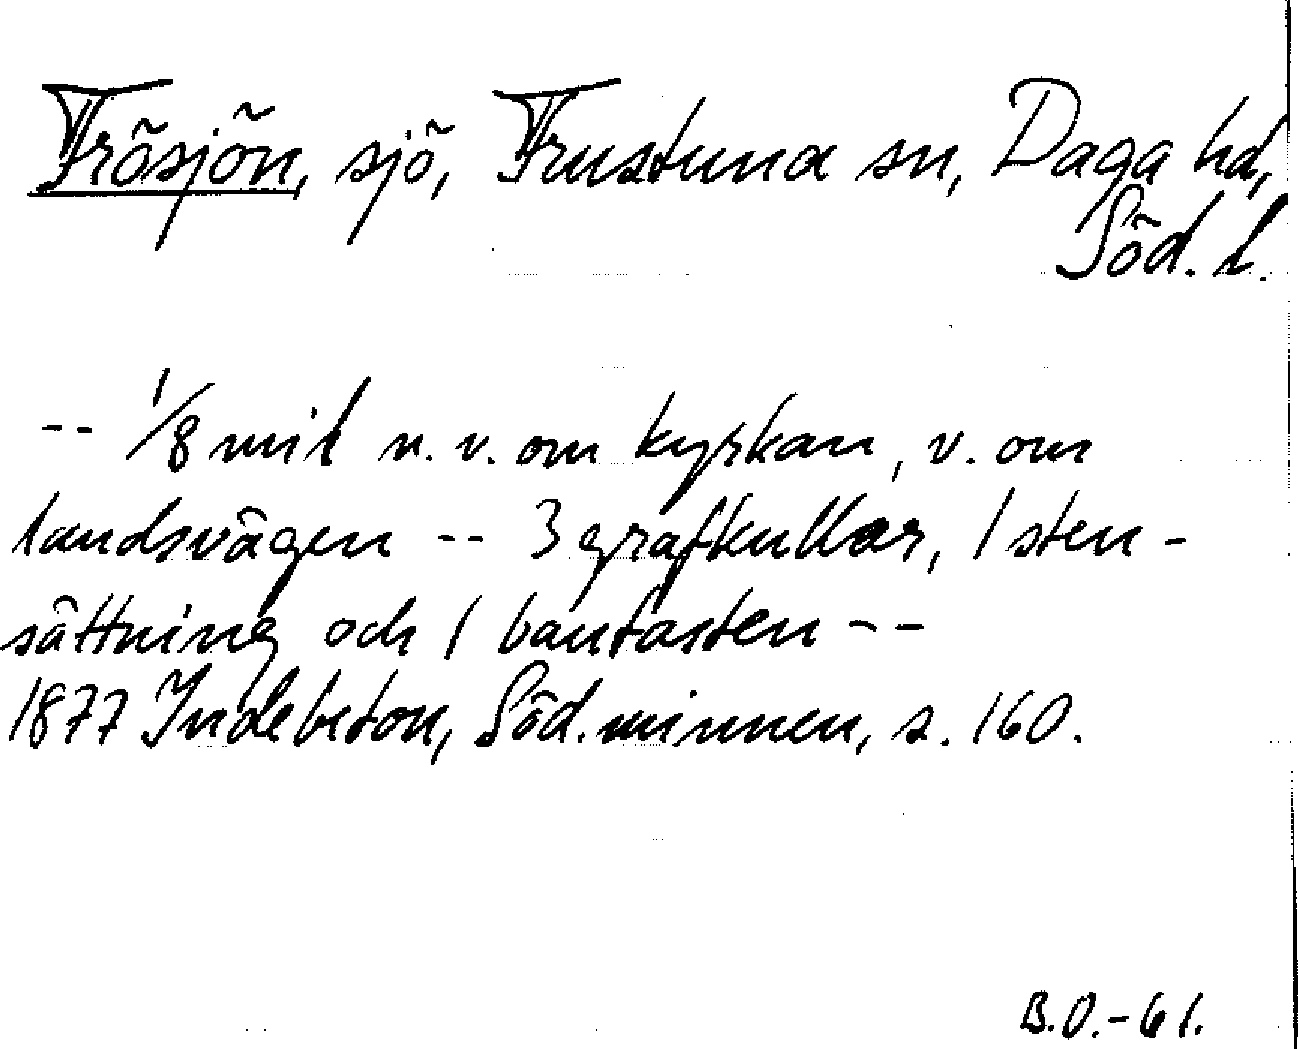 Frösjön, sjö, Frustuna sn, Daga hd,
Söd. l.
-- 1/8 mil n.v. om kyrkan, v. om
landsvägen -- 3 grafkullar, 1 sten-
sättning och 1 bautasten --
1877 Indebetou, Söd. minnen, s. 160.
B.O.-61.